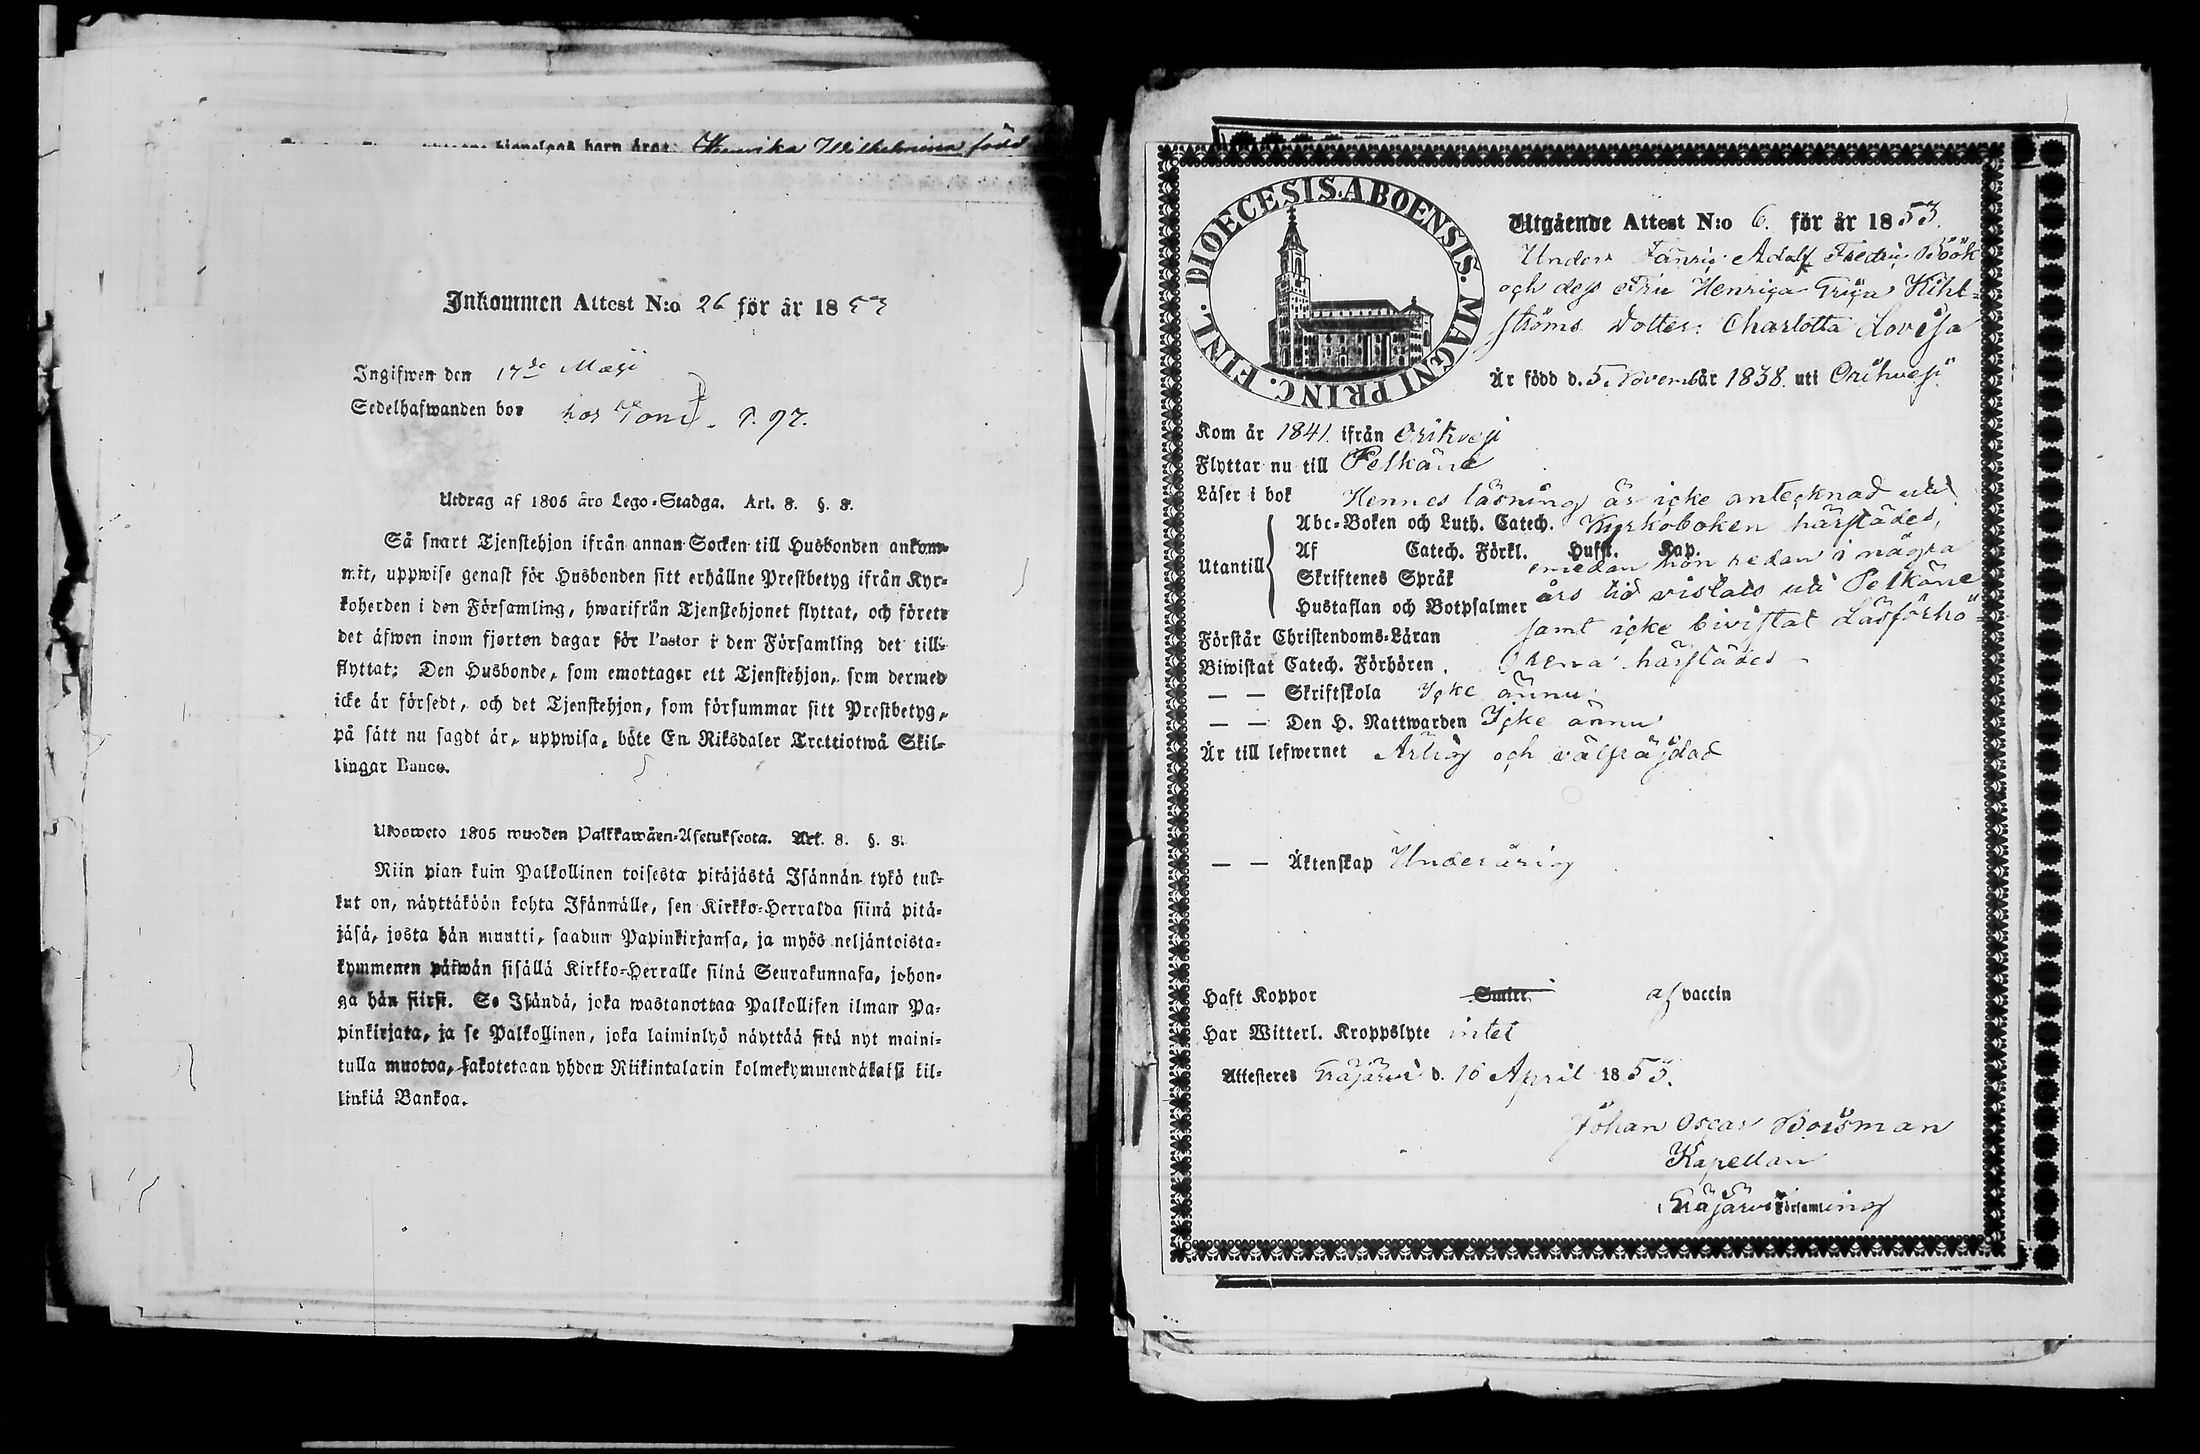 hionelag barn äro: Henrika Wilhelmina född
Inkommen Attest N:o 26 för år 1853
Ingifwen den 17de Maji
Sedelhafwanden bor hos Toni p. 97.
Utdrag af 1805 års Lego-Stadga. Art. 8. §. 8.
Så snart Tjenstehjon ifrån annan Socken till Husbonden ankom-
mit, uppwise genast för Husbonden sitt erhållne Prestbetyg ifrån Kyr-
koherden i den Församling, hwarifrån Tjenstehjonet flyttat, och förete
det äfwen inom fjorton dagar för Pastor i den Församling det till-
flyttat: Den Husbonde, som emottager ett Tjenstehjon, som dermed
icke är försedt, och det Tjenstehjon, som försummar sitt Prestbetyg,
på sätt nu sagdt är, uppwisa, böte En Riksdaler Trettiotwå Skil-
lingar Banco.
Ulosweto 1805 wuoden Palkkawäen-Asetuksesta. Art. 8. §. 8.
Niin pian kuin Palkollinen toisesta pitäjästä Isännän tykö tul-
lut on, näyttäköön kohta Isännälle, sen Kirkko-Herralda siinä pitä-
jäsä, josta hän muutti, saadun Papinkirjansa, ja myös neljäntoista-
kymmenen päiwän sisällä Kirkko-Herralle siinä Seurakunnasa, johon-
ga hän siirsi. Se Isändä, joka wastanottaa Palkollisen ilman Pa-
pinkirjata, ja se Palkollinen, joka laiminlyö näyttää sitä nyt maini-
tulla muotoa, sakotetaan yhden Riikintalarin kolmekymmendäkaksi kil-
linkiä Bankoa.
FINL. DIOECESIS. ABOENSIS. MAGNI PRINC.
Utgående Attest N:o 6. för år 1853.
Under: Fänrig Adolf Fredric Böök
och dess Fru Henrica Kihl-
ströms Dotter: Charlotta Lovisa
Är född d. 5 Novemb år 1838. uti Orihvesi
Kom år 1841. ifrån Orihvesi
Flyttar nu till Pelkäne
Läser i bok Hennes läsning är icke antecknad uti
Utantill Abc-Boken och Luth. Catech. Kyrkoboken härstädes,
Af Catech. Förkl. Hufst. Kap. emedan hon redan i några
Skriftenes Språk års tid vistats uti Pelkäne
Hustaflan och Botpsalmer samt icke bivistat Läsförhö-
Förstår Christendoms-Läran
Biwistat Catech. Förhören. rena härstädes
— — Skriftskola Icke ännu
— — Den H. Nattwarden Icke ännu
Är till lefwernet Ärlig och välfräjdad
— — Äktenskap Underårig
Haft Koppor Smitt. af vaccin
Har Witterl. Kroppslyte intet
Attesteres Eräjärvi d. 16 April 1853.
Johan Oscar Boisman
Kapellan
Eräjärvi Församling